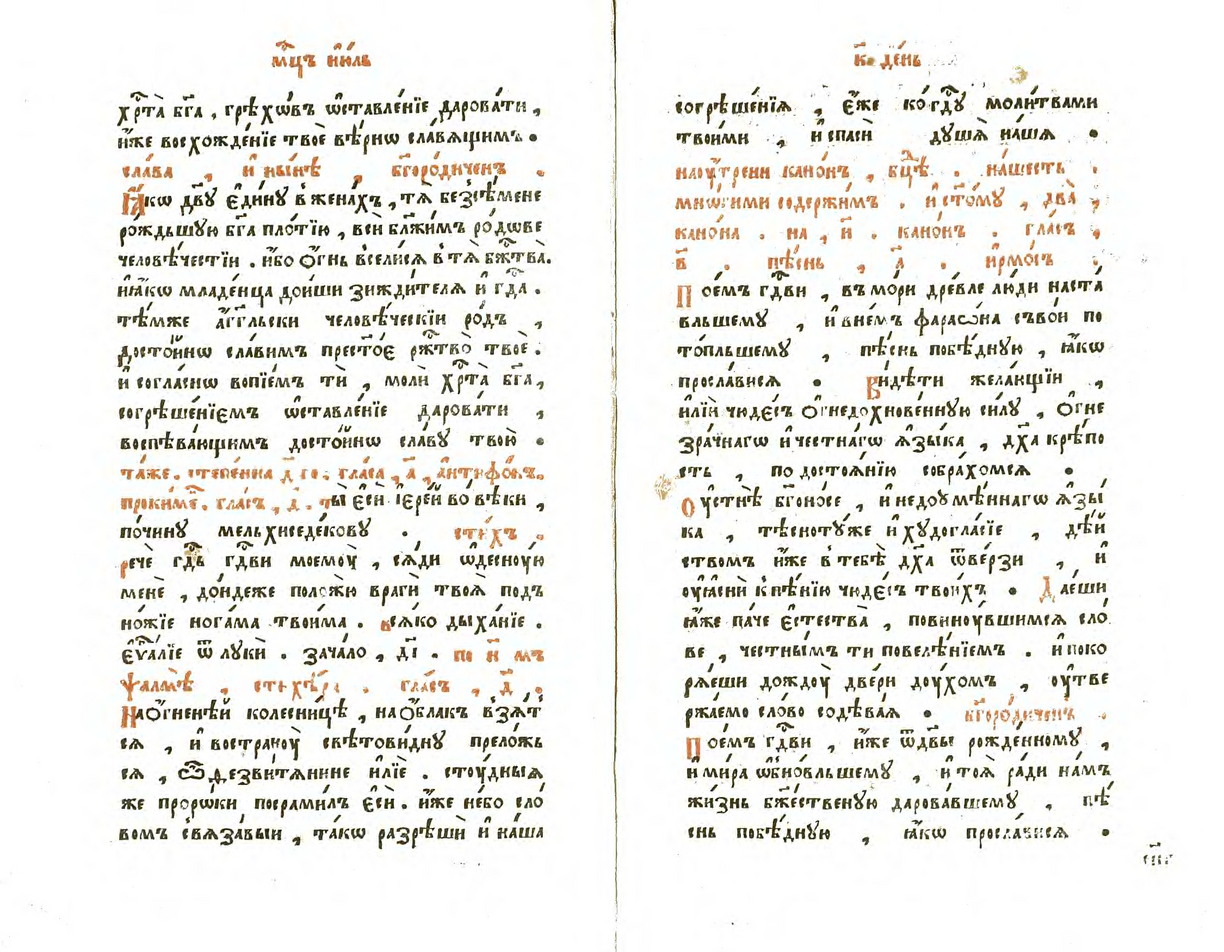 мⷭ҇цъ і҆ю́ль
хрⷭ҇та̀ бг҃а , грѣхѡ́въ ѡ҆ставле́нїе дарова́ти ,
и҆́же восхожде́нїе твоѐ вѣ́рнѡ сла́вѧщимъ .
сла́ва , и҆ ны́нѣ , бг҃оро́диченъ .
Ꙗ҆́кѡ дв҃ꙋ є҆ди́нꙋ в женахъ , тѧ̀ без̾ сѣ́мене
ро́ждьшꙋю бг҃а пло́тїю , вси̂ бл҃жи́мъ ро́дове
человѣ́честїи . и҆́бо ѻ҆́гнь всели́сѧ в тѧ̀ бж҃тва̀.
и҆ ꙗ҆́кѡ младе́нца дои́ши зижди́телѧ и҆ гдⷭ҇а .
тѣ́мже а҆́гг҃льски человѣ́ческїи ро́дъ ,
досто́йнѡ сла́вимъ прест҃о́е ржⷭ҇тво̀ твоѐ .
и҆ согла́снѡ вопїе́мъ ти̂ , молѝ хрⷭ҇та̀ бг҃а ,
согрѣше́нїемъ ѡ҆ставле́нїе дарова́ти ,
воспѣва́ющимъ досто́йнѡ сла́вꙋ твою̀ .
та́же . степе́нна д҃ го . гла́са , а҃ , а҆нтифѡ́нъ.
проки́ме . гла́съ , д҃ . ты̀ є҆сѝ і҆ере́й во вѣ́ки ,
по чи́нꙋ мельхиседе́ковꙋ . сти́хъ .
рече̂ гдⷭ҇ь гдⷭ҇ви моемоу̀ , сѧ́ди ѡ҆деснꙋ́ю
менѐ , до́ндеже положю̀ врагѝ твоѧ̀ подъ
но́жїе нога́ма твои́ма . всѧ́ко дыха́нїе .
є҆ѵⷢ҇а́лїе ѿ луки̂ . зача́ло , д҃і . по н҃ мъ
ѱалмѣ̀ , стихѣ́ра . гла́съ , д҃ .
На ѻ҆́гненѣй колесни́цѣ , на ѻ҆́блакъ взѧ́т
сѧ , и҆ востраноу̀ свѣтови́днꙋ прело́жь
сѧ , ѽ ѳезвитѧ́нине и҆лїѐ . стоу́дныѧ
же проро́ки посрами́лъ є҆сѝ . и҆́же не́бо сло́
вомъ свѧза́выи , та́кѡ разрѣшѝ и҆ на́ша
к҃ де́нь
согрѣше́нїѧ , є҆́же ко гдⷭ҇ꙋ моли́твами
твои́ми , и҆ спасѝ дꙋшѧ̀ на́шѧ .
на оу҆́трени кано́нъ , бцⷣѣ . на шесть .
мно́гими содержи́мъ . и҆ ст҃о́мꙋ , два̀
кано́на . на , и҃ . кано́нъ . гла́съ ,
в҃ . пѣ́снь , а҃ . и҆рмо́съ .
Пое́мъ гдⷭ҇ви , въ мо́ри дре́вле лю́ди наста́
вльшемꙋ , и҆ в не́мъ фараѡ́на съ во́и по
то́пльшемꙋ , пѣ́снь побѣ́днꙋю , ꙗ҆́кѡ
просла́висѧ . Ви́дѣти жела́ющїи ,
и҆лїѝ чюде́съ ѻ҆гнедохнове́ннꙋю си́лꙋ , ѻ҆гне
зра́чнагѡ и҆ честна́гѡ ѧ҆зы́ка , дх҃а крѣ́по
сть , по достоѧ́нїю собра́хомсѧ .
Оу҆стнѣ̀ бг҃оно́се , и҆ недоумѣ́ннагѡ ѧ҆зы́
ка , тѣсноту́же и҆ хꙋдогла́сїе , дѣ́й
ствомъ и҆́же в тебѣ̀ дх҃а ѿве́рзи , и҆
оу҆ѧснѝ к пѣ́нїю чюде́съ твои́хъ . Да́еши
ꙗ҆́же па́че є҆стества̀ , повинꙋ́вшимсѧ сло́
ве , че́стнымъ ти повелѣ́нїемъ . и҆ поко
рѧ́еши дождоу̀ две́ри доу́хомъ , оу҆тве
ржа́емо сло́во содѣ́ваѧ . бг҃оро́диченъ .
Пое́мъ гдⷭ҇ви , и҆́же ѿ дв҃ы рожде́нномꙋ ,
и҆ ми́ра ѡ҆бно́вльшемꙋ , и҆ тоѧ̀ ра́ди на́мъ
жи́знь бжⷭ҇ественꙋю дарова́вшемꙋ , пѣ́
снь побѣ́днꙋю , ꙗ҆́кѡ просла́висѧ .